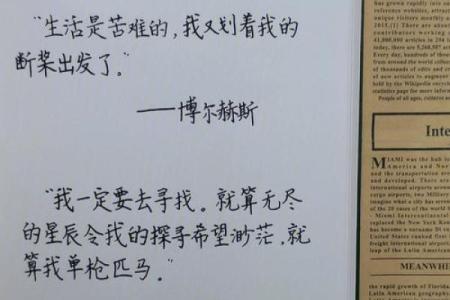 "生活是苦难的,我又划着我的
断桨出发了。"
——博尔赫斯
"我一定要去寻找。就算无尽
的星辰令我的探寻希望渺茫,就
算我单枪匹马。"
has grown rapidly into on
reference websites, attract
unique visitors monthly a
2015.(1) There are about
contributors working
41,000,000 articles in 294 l
today, there are 5,260,587 art
Every day, hundreds of thou
from around the world collec
of thousands of edits and c
of new articles to augment
held by the Wikipedia encyc
statistics page for more infor
People of all ages, cultures a
Inte
MIAMI was the hub to
America and Nor
and the transportation are
and developed. There are
international airports aroun
cargo airports, two Military
imagine what a city has ove
of the 20 cases of the world
- Miami Intercontinental
replaced the New York Ken
has become a surname
United States ranked first
freight international airport
leap of the
MEANWHI
the rapid growth of Florida
Latin American geography